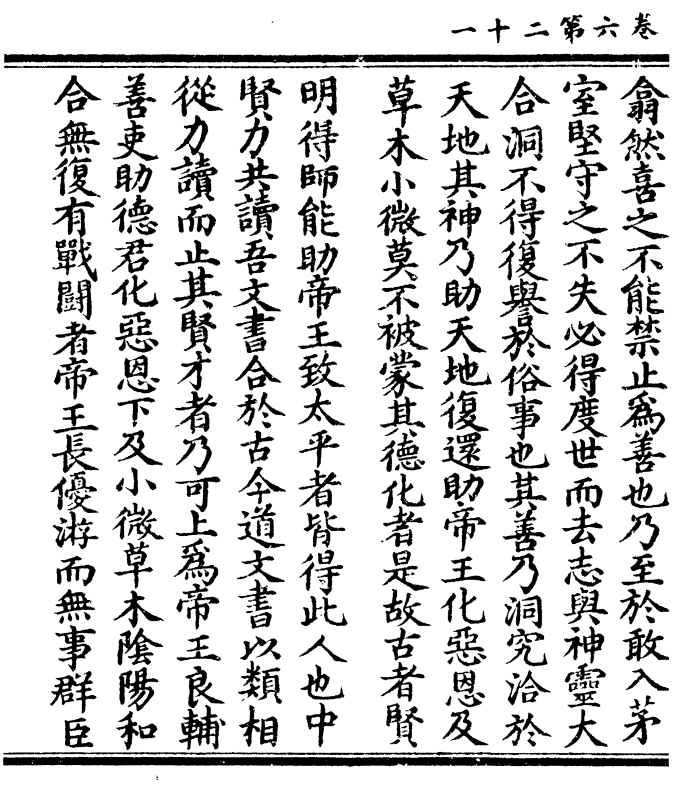 卷六第二十一
翕然喜之不能禁止爲善也乃至於敢入茅
室堅守之不失必得度世而去志與神靈大
合洞不得復譽於俗事也其善乃洞究洽於
天地其神乃助天地復還助帝王化惡恩及
草木小微莫不被蒙其德化者是故古者賢
明得師能助帝王致太平者皆得此人也中
賢力共讀吾文書合於古今道文書以類相
從力讀而止其賢才者乃可上爲帝王良輔
善吏助德君化惡恩下及小微草木陰陽和
合無復有戰鬪者帝王長優游而無事群臣